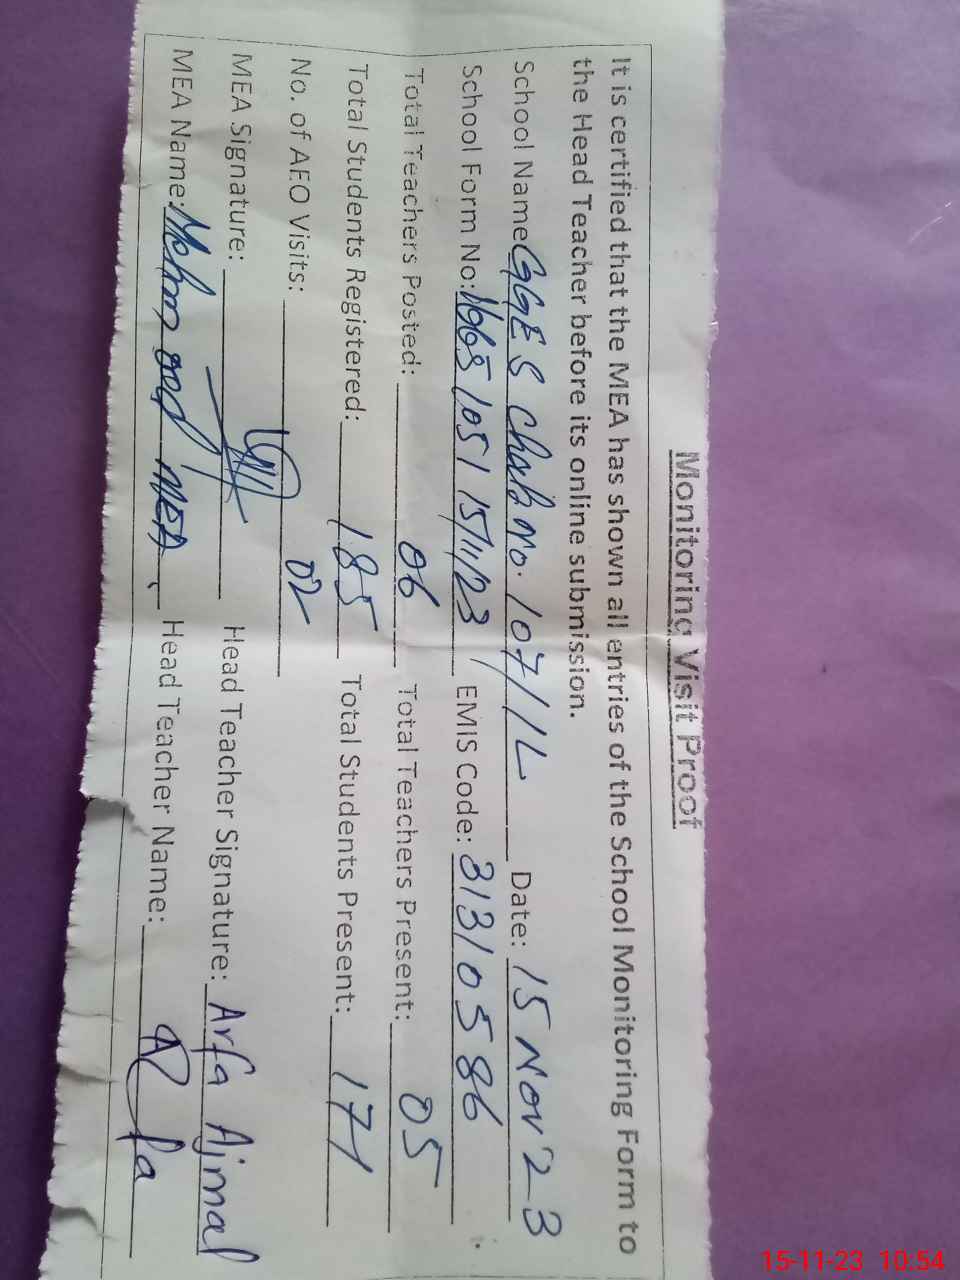 Monitoring Visit Proof
It is certified that the MEA has shown all entries of the School Monitoring Form to
the Head Teacher before its online submission.
School Name GGES Chak no. 107/1L Date: 15 Nov 23
School Form No: 1668 1051 15/11/23 EMIS Code: 31310586
Total Teachers Posted: 06 Total Teachers Present: 05
Total Students Registered: 185 Total Students Present: 171
No. of AEO Visits: 02
MEA Signature: Head Teacher Signature: Arfa Ajmal
MEA Name: Mehmood MEA Head Teacher Name:
15-11-23 10:54